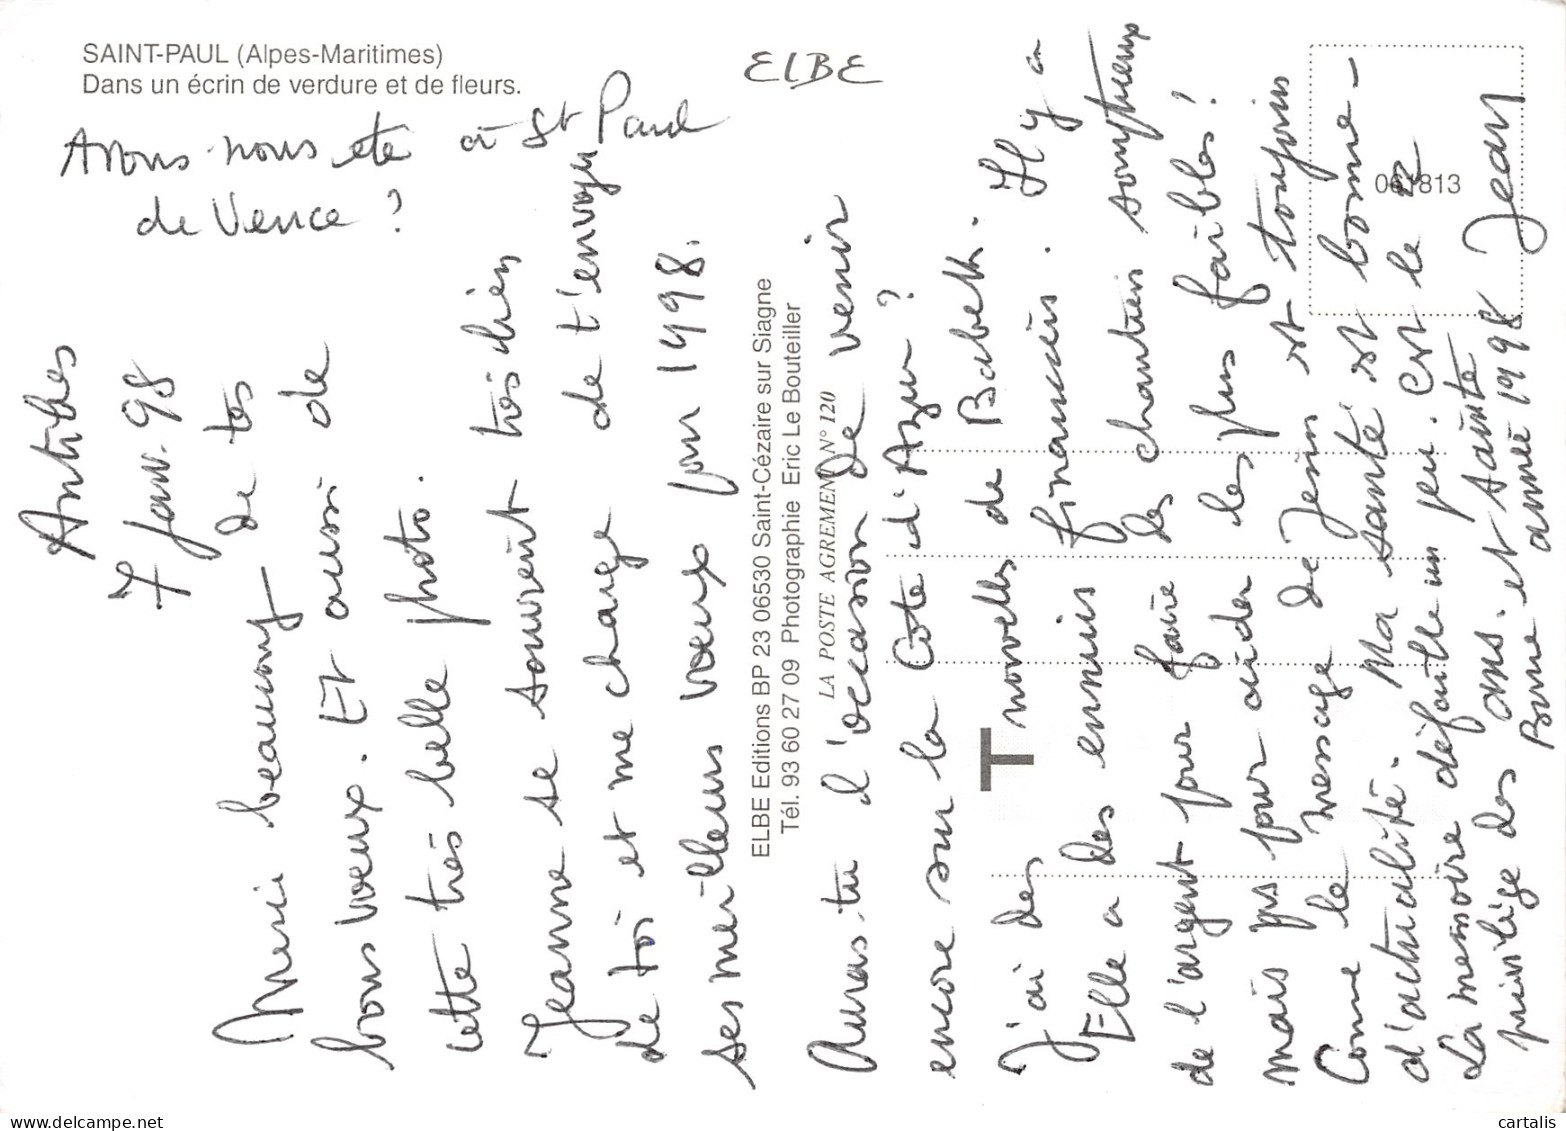 SAINT-PAUL (Alpes-Maritimes)
Dans un écrin de verdure et de fleurs.
ELBE
Avons-nous été à St Paul
de Vence ?
Antibes
7 Janv. 98
Merci beaucoup de tes
bons voeux. Et aussi de
cette très belle photo.
Jeanne se souvient très bien
de toi et me charge de t'envoyer
ses meilleurs voeux pour 1998.
ELBE Editions BP 23 06530 Saint-Cézaire sur Siagne
Tél. 93 60 27 09 Photographie Eric Le Bouteiller
LA POSTE AGREMENT N° 120
Auras-tu l'occasion de venir
encore sur la Côte d'Azur ?
T
J'ai des nouvelles de Babeth. Il y a
Elle a des ennuis financiers.
de l'argent pour faire des chantiers somptueux
mais pas pour aider les plus faibles !
Comme le message de Jésus est toujours
d'actualité. Ma santé est bonne -
La mémoire défaille un peu. C'est le
privilège des ans. et sainte
Bonne et année 1998 Jean
061813
cartalis
delcampe.net